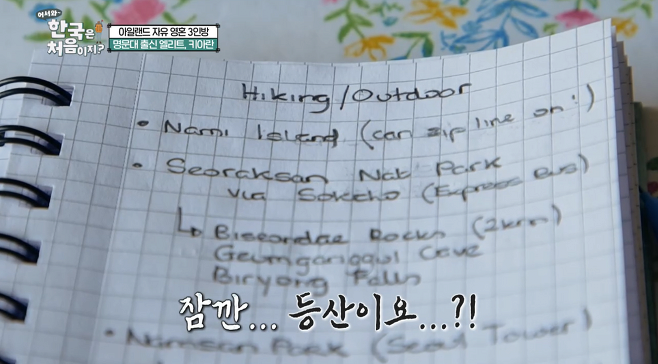 어서와~
한국은
처음이지?
아일랜드 자유 영혼 3인방
명문대 출신 엘리트, 키아란
Hiking/Outdoor
• Nami Island (can zip line on!)
• Seoraksan Nat Park
via Sokcho (Express Bus)
↳ Biseondae Rocks (2km)
Geumganggul Cave
Biryong Falls
잠깐... 등산이요...?!
• Namsan Park (Seoul Tower)